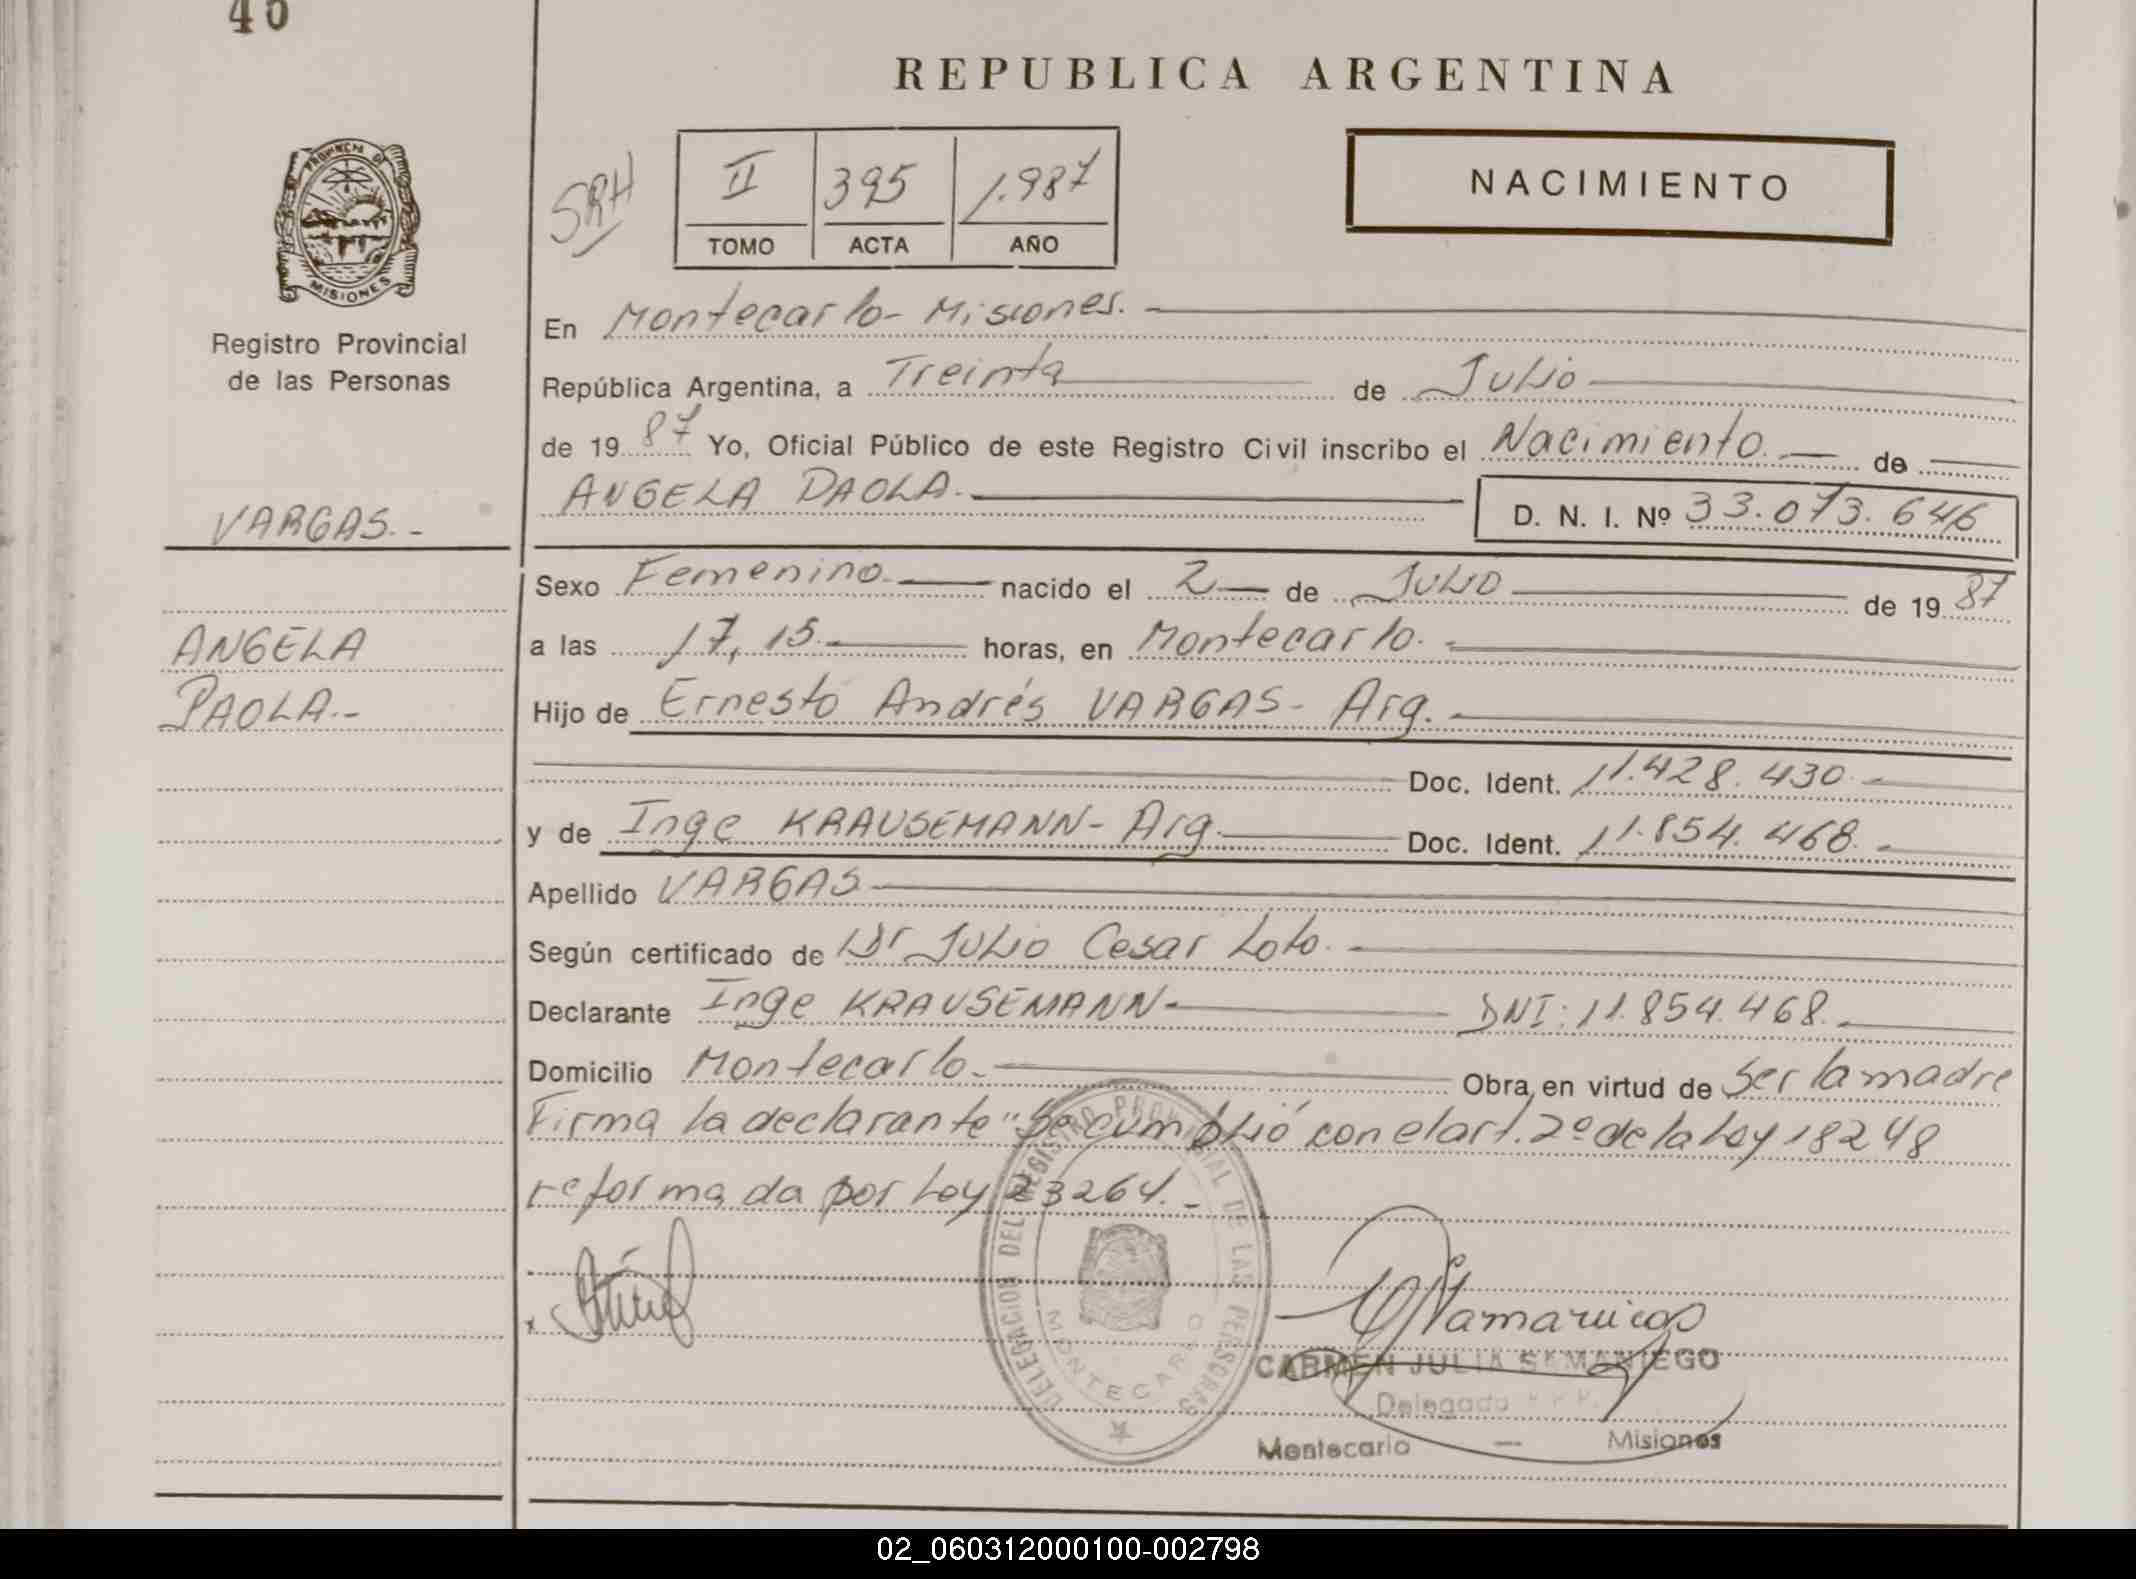 40
REPUBLICA ARGENTINA
PROVINCIA DE
MISIONES
Registro Provincial
de las Personas
SRH
II 395 1.987
TOMO ACTA AÑO
NACIMIENTO
En Montecarlo - Misiones.
República Argentina, a Treinta de Julio
de 19 87 Yo, Oficial Público de este Registro Civil inscribo el Nacimiento de
ANGELA PAOLA.
D. N. I. Nº 33.073.646
VARGAS.-
ANGELA
PAOLA.-
Sexo Femenino. nacido el 2 de Julio de 19 87
a las 17,15. horas, en Montecarlo.
Hijo de Ernesto Andrés VARGAS - Arg.
Doc. Ident. 11.428.430.-
y de Inge KRAUSEMANN - Arg. Doc. Ident. 11.854.468.-
Apellido VARGAS
Según certificado de Dr Julio Cesar Loto.
Declarante Inge KRAUSEMANN - DNI: 11.854.468.
Domicilio Montecarlo. Obra en virtud de Ser la madre
Firma la declarante "Se cumplió con el art. 2º de la Ley 18248
reformada por Ley 23264.-
DELEGACION DEL REGISTRO PROVINCIAL DE LAS PERSONAS
MONTECARLO
CARMEN JULIA SAMANIEGO
Delegada
Montecarlo — Misiones
02_060312000100-002798